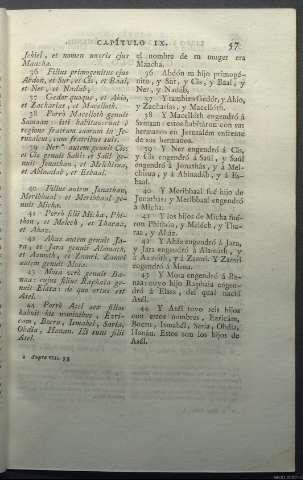 CAPÍTULO IX.
57
Jehiel, et nomen uxoris ejus
Maacha.
36 Filius primogenitus ejus
Abdon, et Sur, et Cis, et Baal,
et Ner, et Nadab,
37 Gedor quoque, et Ahio,
et Zacharias, et Macelloth.
38 Porrò Macelloth genuit
Samaan: isti habitaverunt è
regione fratrum suorum in Je-
rusalem, cum fratribus suis.
39 Ner autem genuit Cis:
et Cis genuit Saül: et Saül ge-
nuit Jonathan, et Melchisua,
et Abinadab, et Esbaal.
40 Filius autem Jonathan,
Meribbaal: et Meribbaal ge-
nuit Micha.
41 Porrò filii Micha, Phi-
thon, et Melech, et Tharaa,
et Ahaz.
42 Ahaz autem genuit Ja-
ra, et Jara genuit Alamath,
et Azmoth, et Zamri. Zamri
autem genuit Mosa.
43 Mosa verò genuit Ba-
naa: cujus filius Raphaia ge-
nuit Elasa: de quo ortus est
Asel.
44 Porrò Asel sex filios
habuit his nominibus, Ezri-
cam, Bocru, Ismahel, Saria,
Obdia, Hanan. Hi sunt filii
Asel.
1 Supra VIII. 33
el nombre de su muger era
Maacha.
36 Abdón su hijo primogé-
nito, y Sur, y Cis, y Baal, y
Ner, y Nadab,
37 Y tambien Gedór, y Ahio,
y Zacharías, y Macellóth.
38 Y Macellóth engendró á
Samaan: estos habitaron con sus
hermanos en Jerusalém enfrente
de sus hermanos.
39 Y Ner engendró á Cis,
y Cis engendró á Saúl, y Saúl
engendró á Jonathás, y á Mel-
chîsua, y á Abinadáb, y á Es-
baal.
40 Y Meribbaal fué hijo de
Jonathás: y Meribbaal engendró
á Micha.
41 Y los hijos de Micha fué-
ron Phithón, y Meléch, y Tha-
raa, y Aház.
42 Y Aház engendró á Jara,
y Jara engendró á Alamáth, y
á Azmóth, y á Zamri. Y Zamri
engendró á Mosa.
43 Y Mosa engendró á Ba-
naa: cuyo hijo Raphaia engen-
dró á Elasa, del qual nació
Asél.
44 Y Asél tuvo seis hijos
con estos nombres, Ezricám,
Bocru, Ismahél, Saria, Obdía,
Hanán. Estos son los hijos de
Asél.